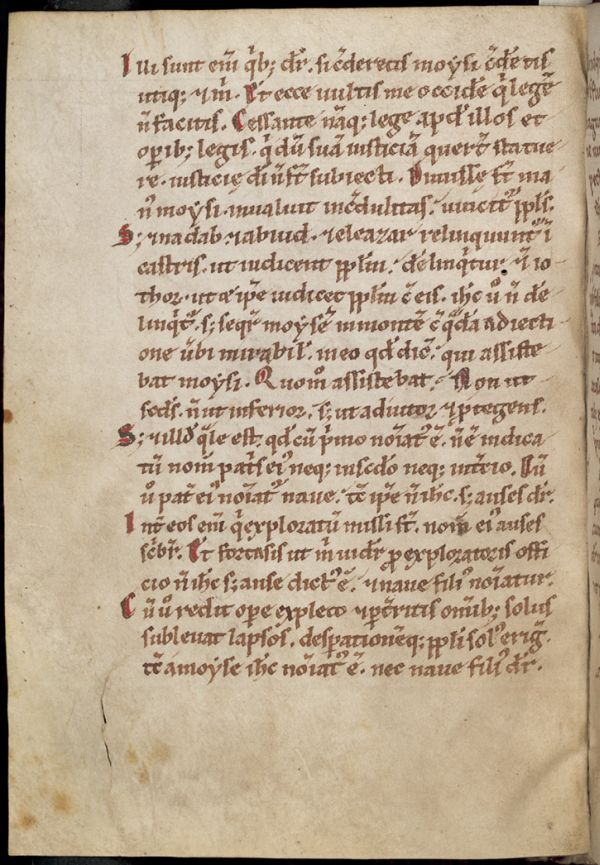 Illi sunt eni̅ q̅b; dr̅. si c̅deretis moysi c̅detis
utiq; ⁊ m̅. Et ecce uultis me occide̅ q̅ lege̅
n̅ facitis. Cessante na̅q; lege apd̅ illos et
op̅ib; legis. q̅ du̅ sua̅ iusticia̅ quer̅t statue
re. iusticię di̅ n̅ st̅ subiecti. st̅ ma
n̅ moysi. inualuit inc̅dulitas. ppl̅s.
S; ⁊ nadab ⁊ abiud. ⁊ eleazar relinquunt᷒ i̅
castris. ut iudicent ppl̅m. delinq̅tur. ⁊ i̅ io
thor. ut ⁊ ip̅e iudicet ppl̅m c̅ eis. ih̅c ů n̅ de
linq̅t᷒. s; seq̅r moyse̅ in monte̅ c̅ q̅da̅ adiecti
one u̅bi mirabil̅. in eo qd̅ dic̅. qui assiste
bat moysi. Quom̊ assistebat. Non ut
sed̅s. n̅ ut inferior. s; ut adiutor ⁊ p̅tegens.
S; ⁊ illd̅ q̅le est. qd̅ cu̅ p̅mo no̅iat᷒ e̅. n̅ e̅ indica
tu̅ nom̅ pat̅s ei᷒ neq; in sc̅do neq; in t̅cio. Du̅
ů pat̅ ei᷒ no̅iat᷒ naue. tc̅ ip̅e n̅ ih̅c. s; auses dr̅.
Int̅ eos eni̅ q̅ exploratu̅ missi st̅. nom̅ ei᷒ auses
sc̅bit᷒. Et fortassis ut m̅ uidr̅ pro exploratoris offi
cio n̅ ih̅c s; ause dict᷒ e̅. ⁊ naue fili᷒ no̅iatur.
Cu̅ ů rediit ope̅ expleto ⁊ p̅t̅ritis om̅ib; solus
subleuat lapsos. desp̅atione̅q; ppl̅i sol᷒ erig̅.
tc̅ a moyse ih̅c no̅iat᷒ e̅. nec naue fili᷒ dr̅.